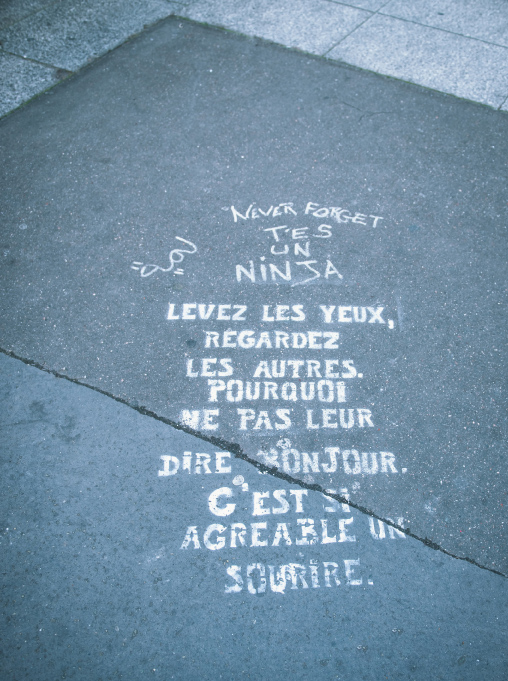 "NEVER FORGET
T'ES
UN
NINJA
LEVEZ LES YEUX,
REGARDEZ
LES AUTRES.
POURQUOI
NE PAS LEUR
DIRE BONJOUR.
C'EST SI
AGREABLE UN
SOURIRE.